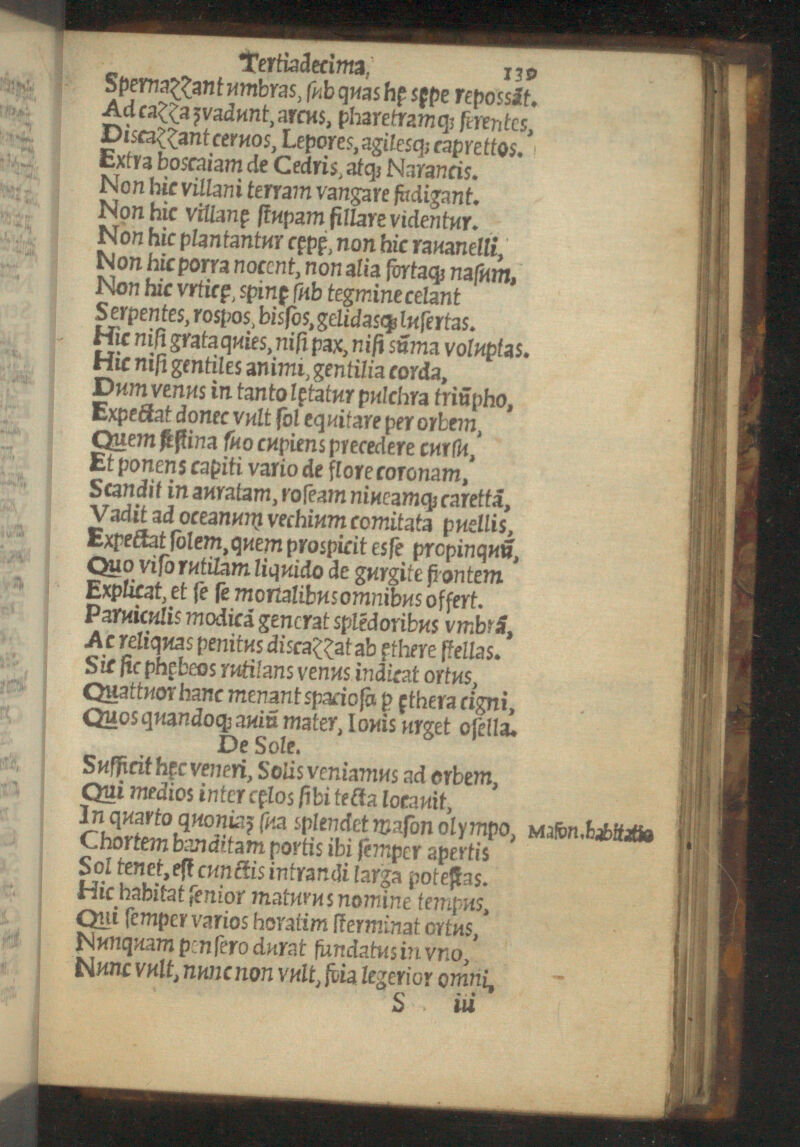 Tertiadecima, 139
Spernazzant umbras, sub quas hę sępe repossāt.
Ad cazzaʒ vadunt, arcus, pharetramq; ferentes,
Discazzant ceruos, Lepores, agilesq; caprettos.
Extra boscaiam de Cedris, atq; Narancis.
Non hic villani terram vangare fadigant.
Non hic villanę stupam fillare videntur.
Non hic plantantur cępę, non hic rauanelli,
Non hic porra nocent, non alia fortaq; nasum,
Non hic vrticę, spinę sub tegmine celant
Serpentes, rospos, bissos, gelidasq; lusertas.
Hic nisi grata quies, nisi pax, nisi sūma voluptas.
Hic nisi gentiles animi, gentilia corda,
Dum venus in tanto lętatur pulchra triūpho,
Expectat donec vult sol equitare per orbem,
Quem festina suo cupiens precedere cursu,
Et ponens capiti vario de flore coronam,
Scandit in auratam, roseam niueamq; carettā,
Vadit ad oceanum vechium comitata puellis,
Expectat solem, quem prospicit esse propinquū,
Quo viso rutilam liquido de gurgite frontem
Explicat, et se se mortalibus omnibus offert.
Paruiculis modicā generat splēdoribus vmbrā,
Ac reliquas penitus discazzat ab ęthere stellas.
Sic sic phębeos rutilans venus indicat ortus,
Quattuor hanc menant spaciosa p ęthera cigni,
Quos quandoq; auiū mater, Iouis urget osella.
De Sole.
Sufficit hęc veneri, Solis veniamus ad orbem,
Qui medios inter cęlos sibi tecta locauit,
In quarto quoniaʒ sua splendet mason olympo, Mason. habitatio
Chortem banditam portis ibi semper apertis
Sol tenet, est cunctis intrandi larga potestas.
Hic habitat senior maturus nomine tempus,
Qui semper varios horatim sterminat ortus,
Nunquam pensero durat fundatus in vno,
Nunc vult, nunc non vult, foia legerior omni,
S iii